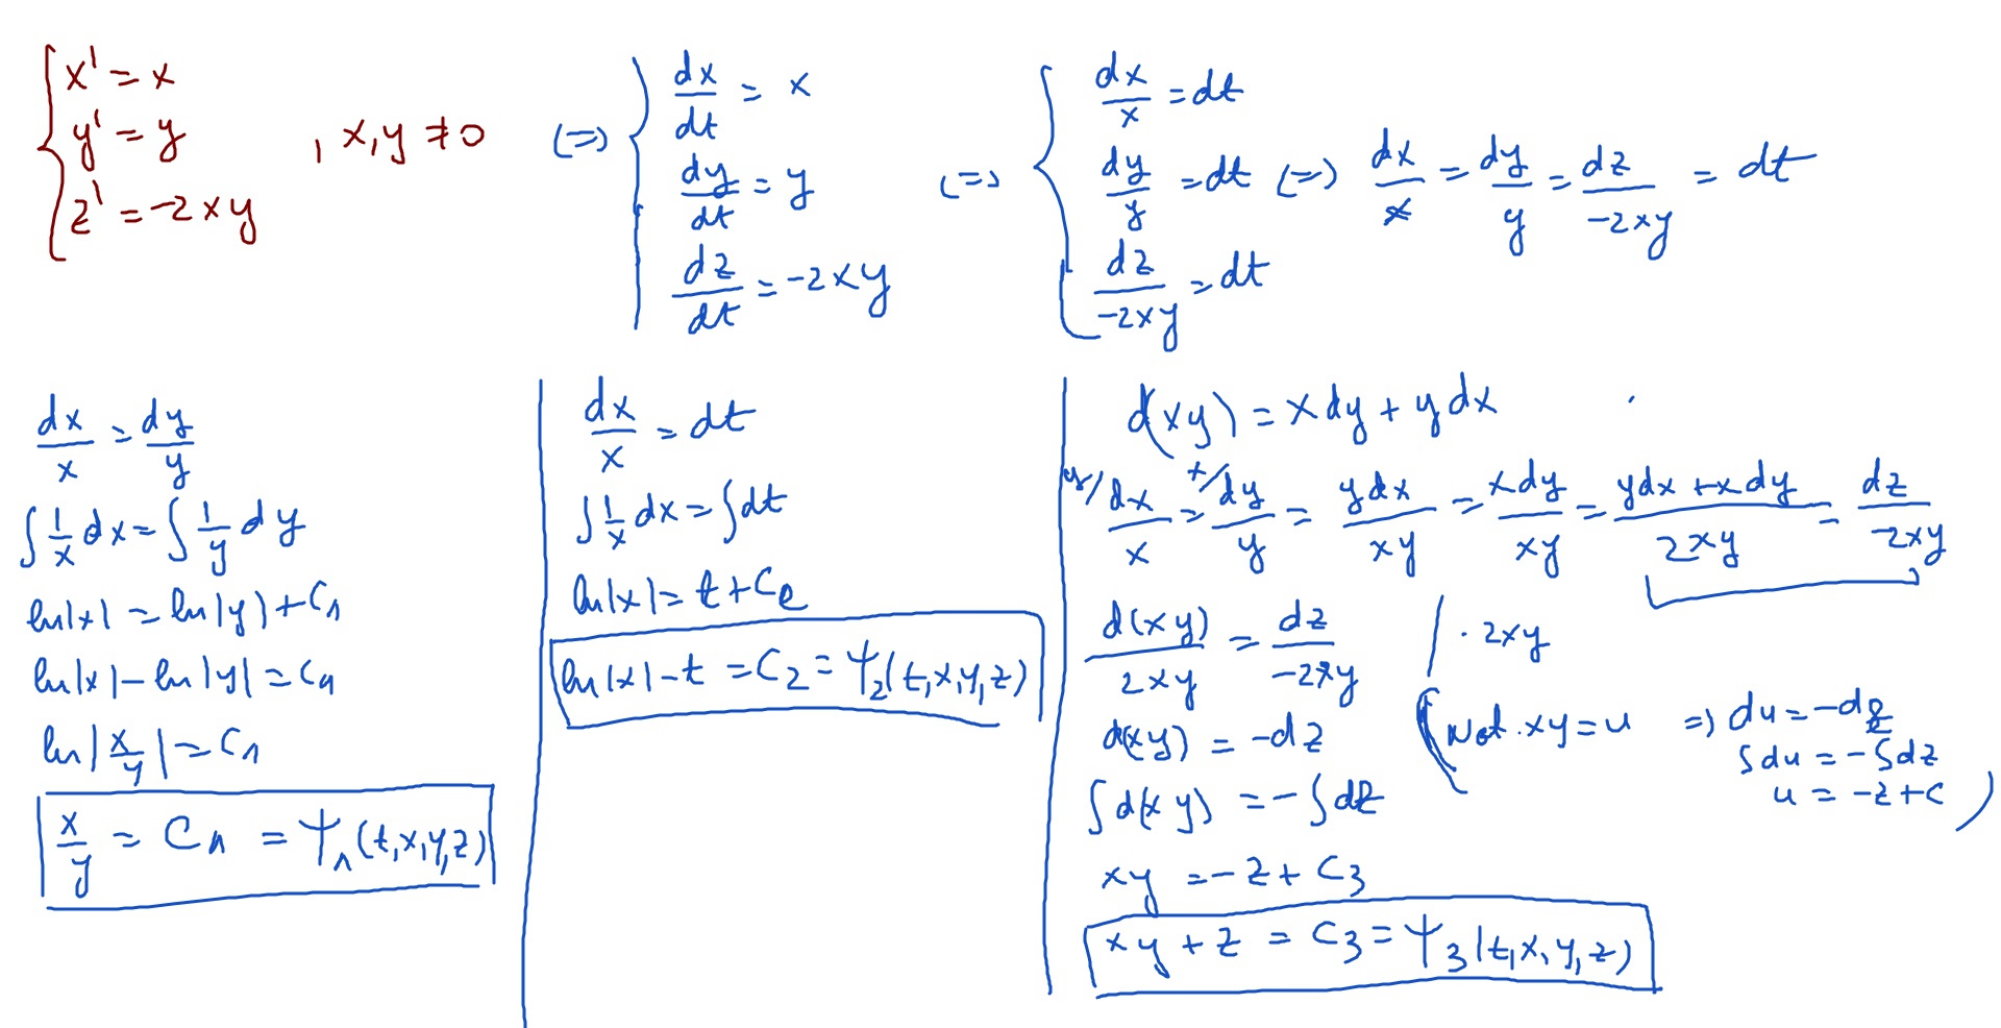 { x' = x
y' = y , x,y ≠ 0
z' = -2xy
(=) { dx/dt = x
dy/dt = y
dz/dt = -2xy
(=) { dx/x = dt
dy/y = dt
dz/-2xy = dt
(=) dx/x = dy/y = dz/-2xy = dt
dx/x = dy/y
∫ 1/x dx = ∫ 1/y dy
ln|x| = ln|y| + C1
ln|x| - ln|y| = C1
ln|x/y| = C1
x/y = C1 = Ψ1(t,x,y,z)
dx/x = dt
∫ 1/x dx = ∫ dt
ln|x| = t + C2
ln|x| - t = C2 = Ψ2(t,x,y,z)
d(xy) = x dy + y dx
y/ dx/x = x/ dy/y = ydx/xy = xdy/xy = ydx + xdy/2xy = dz/-2xy
d(xy)/2xy = dz/-2xy | · 2xy
d(xy) = -dz
∫ d(xy) = -∫ dz
(Not. xy = u => du = -dz
∫ du = -∫ dz
u = -z + c )
xy = -z + C3
xy + z = C3 = Ψ3(t,x,y,z)